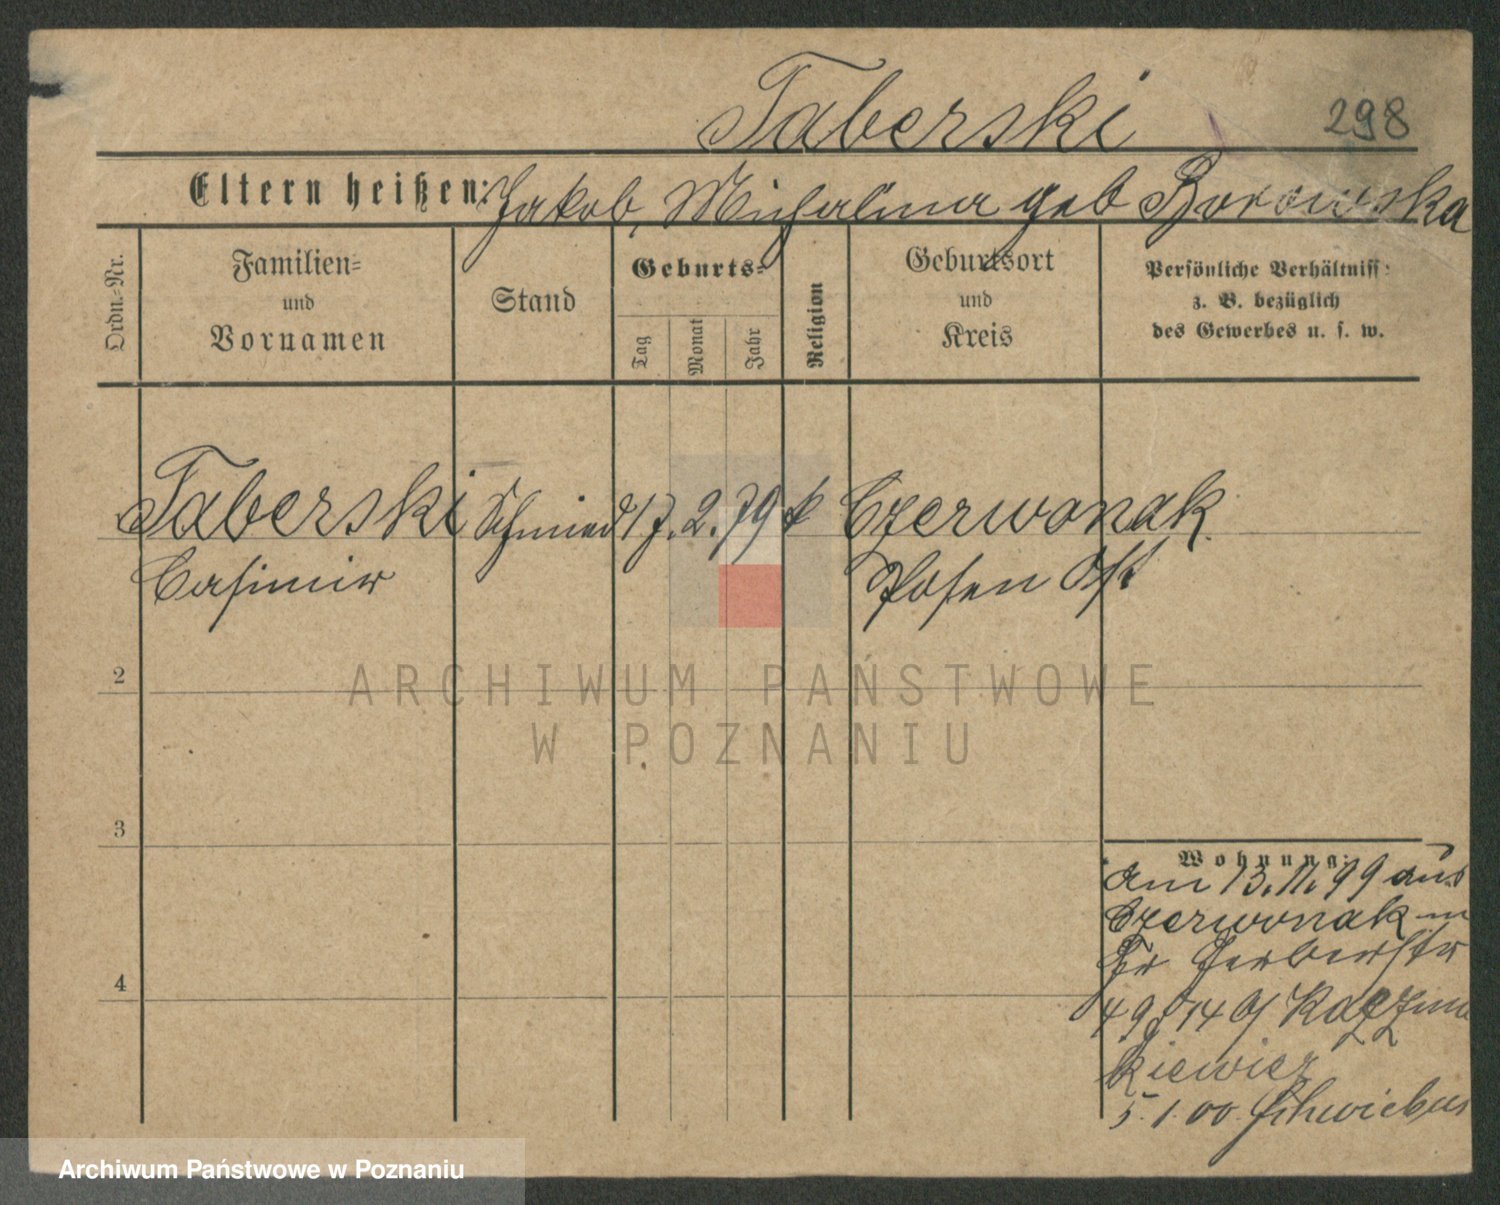 Taberski 298
Eltern heißen: Jakob, Michalina geb Borowska
Ordn.-Nr.
Familien-
und
Vornamen
Stand
Geburts-
Tag
Monat
Jahr
Religion
Geburtsort
und
Kreis
Persönliche Verhältniss:
z. B. bezüglich
des Gewerbes u. s. w.
Taberski Schmied 17. 2. 79 k Czerwonak
Casimir Posen Ost
2
ARCHIWUM PAŃSTWOWE
W POZNANIU
3
Wohnung:
am 13.11.99 aus
Czerwonak
Gr Gerberstr
4
49
kiewicz
5.1.00. Schwiebus
Archiwum Państwowe w Poznaniu